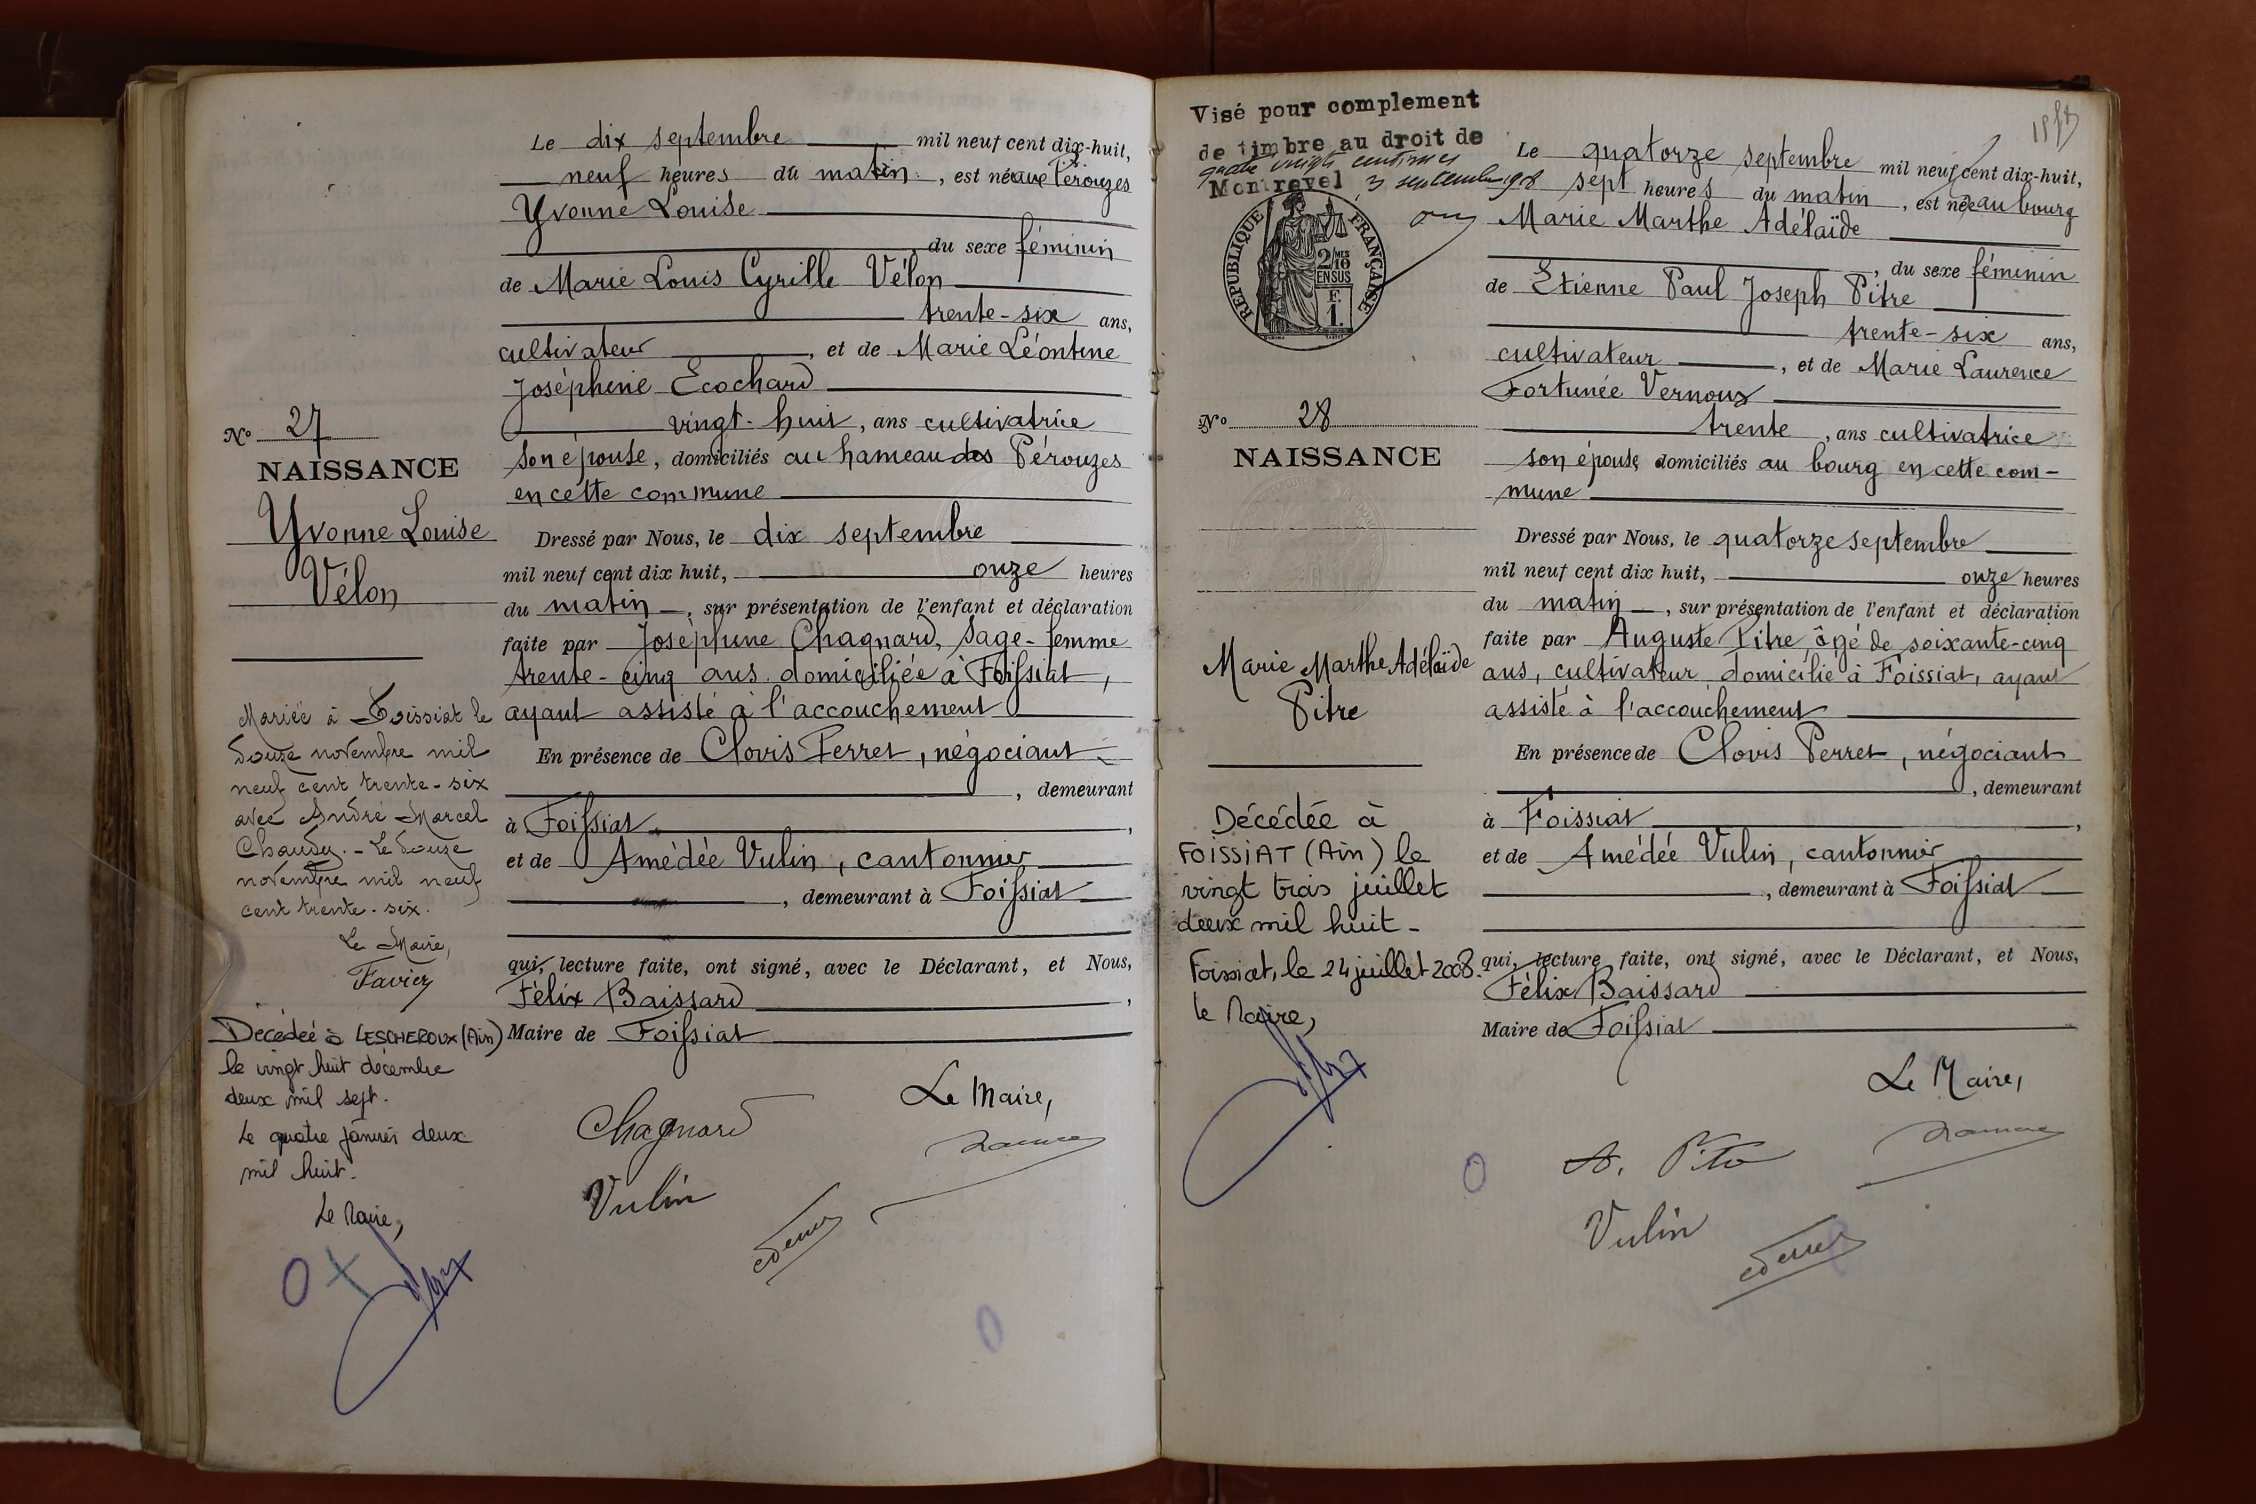 Le dix septembre mil neuf cent dix-huit,
neuf heures du matin, est née aux Pérouzes
Yvonne Louise
du sexe féminin
de Marie Louis Cyrille Vélon
trente-six ans,
cultivateur, et de Marie Léontine
Joséphine Ecochard
vingt-huit, ans cultivatrice
son épouse, domiciliés au hameau des Pérouzes
en cette commune
Dressé par Nous, le dix septembre
mil neuf cent dix huit, onze heures
du matin, sur présentation de l'enfant et déclaration
faite par Joséphine Chagnard, sage-femme
trente-cinq ans domiciliée à Foissiat,
ayant assisté à l'accouchement
En présence de Clovis Perret, négociant
, demeurant
à Foissiat,
et de Amédée Vulin, cantonnier
, demeurant à Foissiat
qui, lecture faite, ont signé, avec le Déclarant, et Nous,
Félix Baissard,
Maire de Foissiat
Le Maire,
Chagnard
Vulin
No 27
NAISSANCE
Yvonne Louise
Vélon
Mariée à Foissiat le
douze novembre mil
neuf cent trente-six
avec André Marcel
Chaudy. - Le douze
novembre mil neuf
cent trente-six.
Le Maire,
Favier
Décédée à LESCHEROUX (Ain)
le vingt huit décembre
deux mil sept.
Le quatre janvier deux
mil huit.
Le Maire,
Visé pour complement
de timbre au droit de
quatre vingts centimes
Montrevel 3 septembre 1918
REPUBLIQUE FRANÇAISE
2/10 MES
EN SUS
F.
1.
Le quatorze septembre mil neuf cent dix-huit,
sept heures du matin, est née au bourg
Marie Marthe Adélaïde
, du sexe féminin
de Etienne Paul Joseph Pitre
trente-six ans,
cultivateur, et de Marie Laurence
Fortunée Vernoux
trente, ans cultivatrice
son épouse domiciliés au bourg en cette com-
mune
Dressé par Nous, le quatorze septembre
mil neuf cent dix huit, onze heures
du matin, sur présentation de l'enfant et déclaration
faite par Auguste Pitre âgé de soixante-cinq
ans, cultivateur domicilié à Foissiat, ayant
assisté à l'accouchement
En présence de Clovis Perret, négociant
, demeurant
à Foissiat,
et de Amédée Vulin, cantonnier
, demeurant à Foissiat
qui, lecture faite, ont signé, avec le Déclarant, et Nous,
Félix Baissard
Maire de Foissiat
Le Maire,
A. Pitre
Vulin
No 28
NAISSANCE
Marie Marthe Adélaïde
Pitre
Décédée à
FOISSIAT (Ain) le
vingt trois juillet
deux mil huit -
Foissiat, le 24 juillet 2008.
Le Maire,